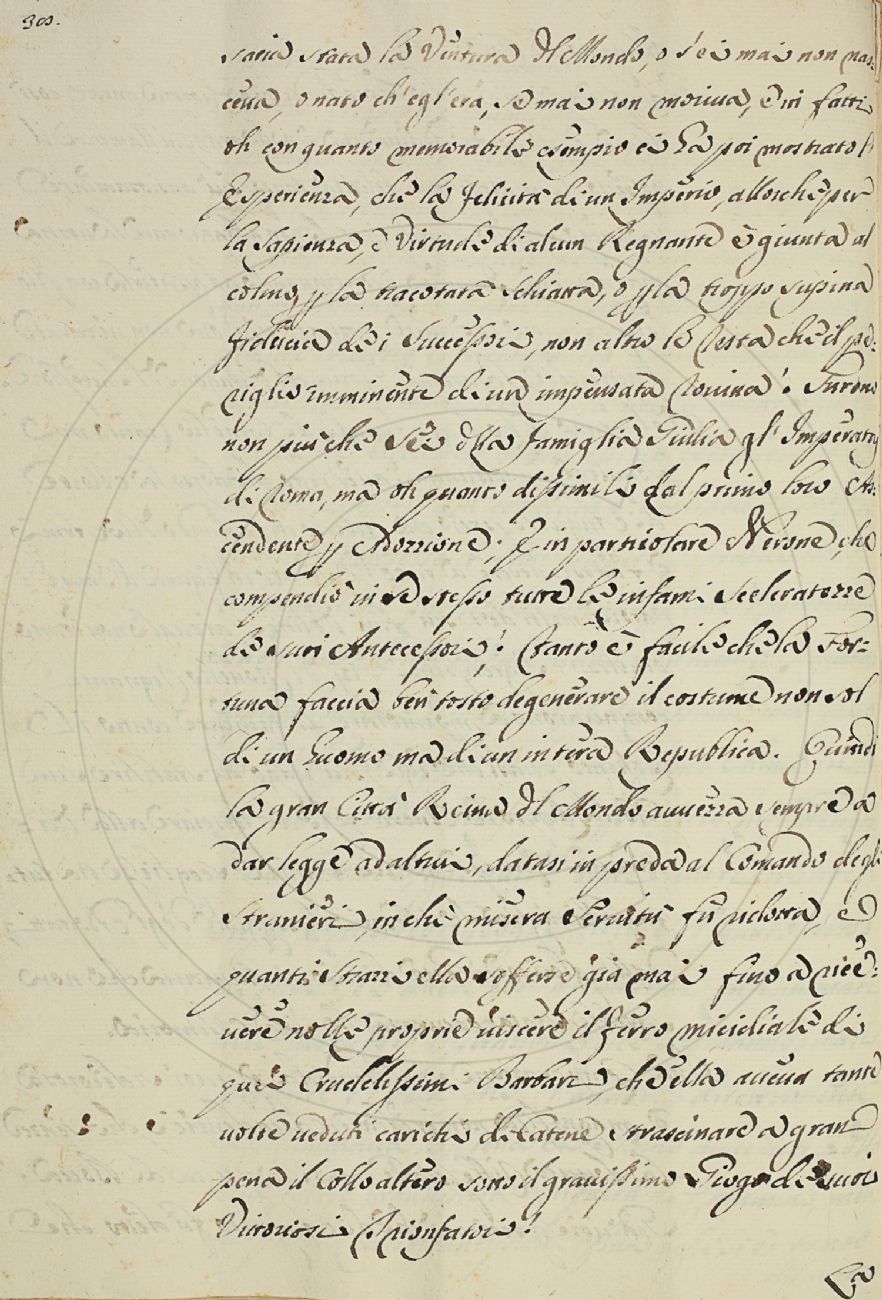 300.
saria stata la Ventura dl Mondo, o s'ei mai non nas:
ceva, o nato ch'egl'era, se mai non moriva, e in fatti
oh con quanto memorabile esempio ci ha poi mostrato l'
Esperienza, che la felicità di un Imperio, allorche per
la Sapienza, e Virtude di alcun Regnante è giunta al
colmo, p la tracotata Schiatta, o p la troppo supina
fiducia de i Successori, non altro le resta che il pe:
riglio imminente di una impensata rovina! Furono
non più che sei dlla famiglia Giulia gl' Imperatoʒ
di Roma, ma oh quanto dissimili dal primo loro As:
cendente p Adozzione; E in particolare Nerone, che
compendiò in se stesso tutte le infami Sceleratezze
de suoi Antecessori! Tanto è facile che la For:
tuna faccia ben tosto degenerare il costume non sol
di un huomo ma di un intera Republica. Quindi
la gran Città Reina dl Mondo avvezza sempre a
dar legge ad altrui, datasi in preda al Comando degli
Stranieri, in che misera Servitù fu ridotta, e
quanti strazi ella sofferse già mai fino a rice:
vere nelle proprie viscere il ferro micidiale di
quei Crudelissimi Barbari, che ella aveva tante
volte veduti carichi di Catene strascinare a gran
pena il Collo altero sotto il gravissimo Giogo de suoi
Vittoriosi Trionfatori!
La